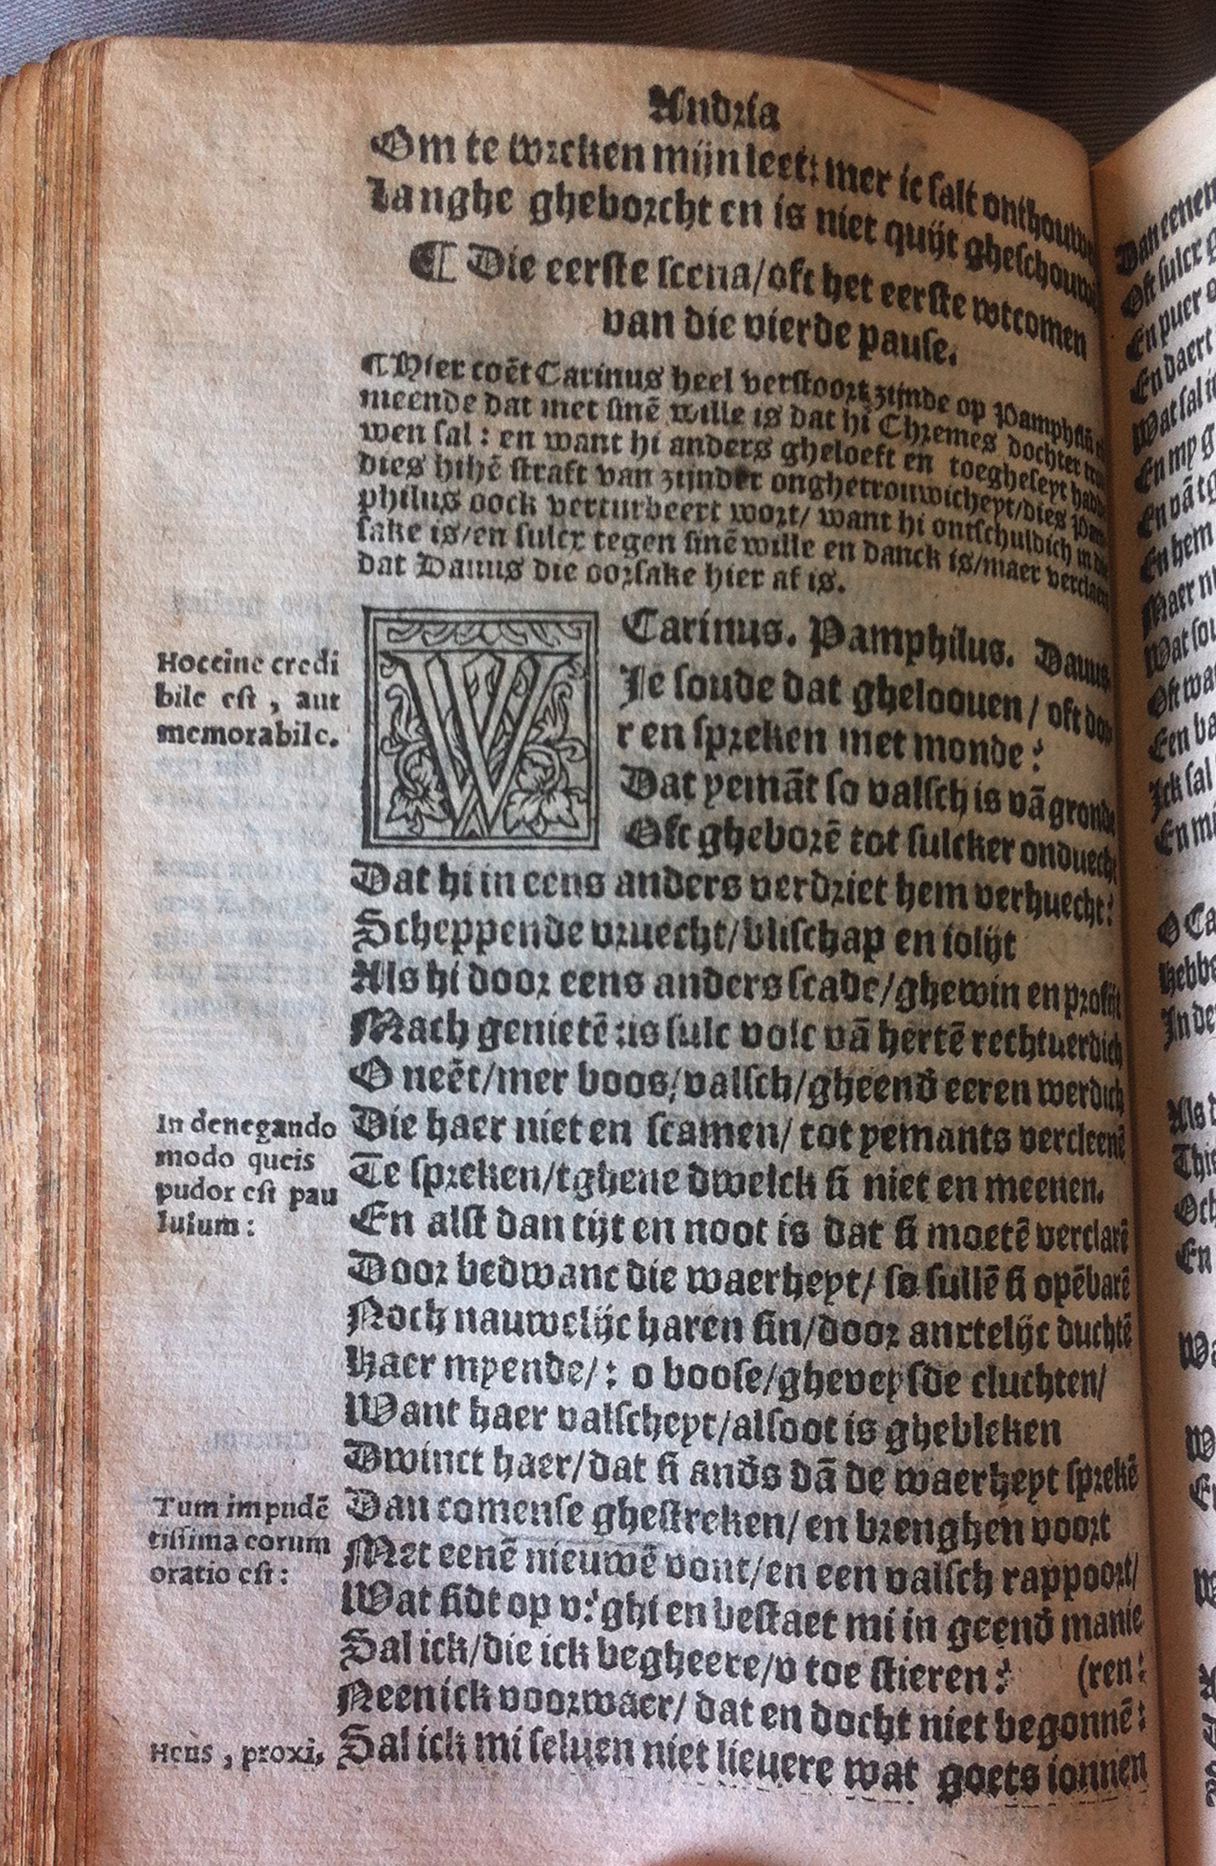 Andria
Om te wreken mijn leet: mer ic salt onthouwen
Langhe gheborcht en is niet quijt gheschouwen
¶ Die eerste scena/oft het eerste wtcomen
van die vierde pause.
¶Hier coēt Carinus heel verstoort zijnde op
meende dat met sinē wille is dat hi Chremes dochter
wen sal: en want hi anders gheloeft en toegheseyt
dies hi hē straft van zijnder onghetrouwicheyt/dies
philus oock verturbeert wort/ want hi ontschuldich in die
sake is/en sulcx tegen sinē wille en danck is/maer
dat Dauus die oorsake hier af is.
Carinus. Pamphilus. Dauus.
Hoccine credi
bile est, aut
memorabile.
WIe soude dat ghelooven/ oft
r en spreken met monde?
Dat yemāt so valsch is vā gronde
Oft gheborē tot sulcker onduecht
Dat hi in eens anders verdriet hem verhuecht?
Scheppende vruecht/blischap en iolijt
Als hi door eens anders scade/ghewin en profijt
Mach genietē :is sulc volc vā hertē rechtuerdich
O neēt/mer boos/valsch/gheend̄ eeren werdich
In denegando
modo queis
pudor est pau
lulum:
Die haer niet en scamen/ tot yemants vercleenē
Te spreken/tghene dwelck si niet en meenen.
En alst dan tijt en noot is dat si moetē verclarē
Door bedwanc die waerheyt/ so sullē si opēbarē
Noch nauwelijc haren sin/door anxtelijc duchtē
Haer myende/: o boose/gheveysde cluchten/
Want haer valscheyt/alsoot is ghebleken
Dwinct haer/dat si and̄s dā de waerheyt sprekē
Tum impudē
tissima eorum
oratio est:
Dan comense ghestreken/ en brenghen voort
Met eenē nieuwē vont/en een valsch rappoort/
Wat sidt op v? ghi en bestaet mi in geend̄ manie
Sal ick/die ick begheere/v toe stieren? (ren:
Neen ick voorwaer/ dat en docht niet begonnē:
Heus, proxi,
Sal ick mi seluen niet lieuere wat goets ionnen